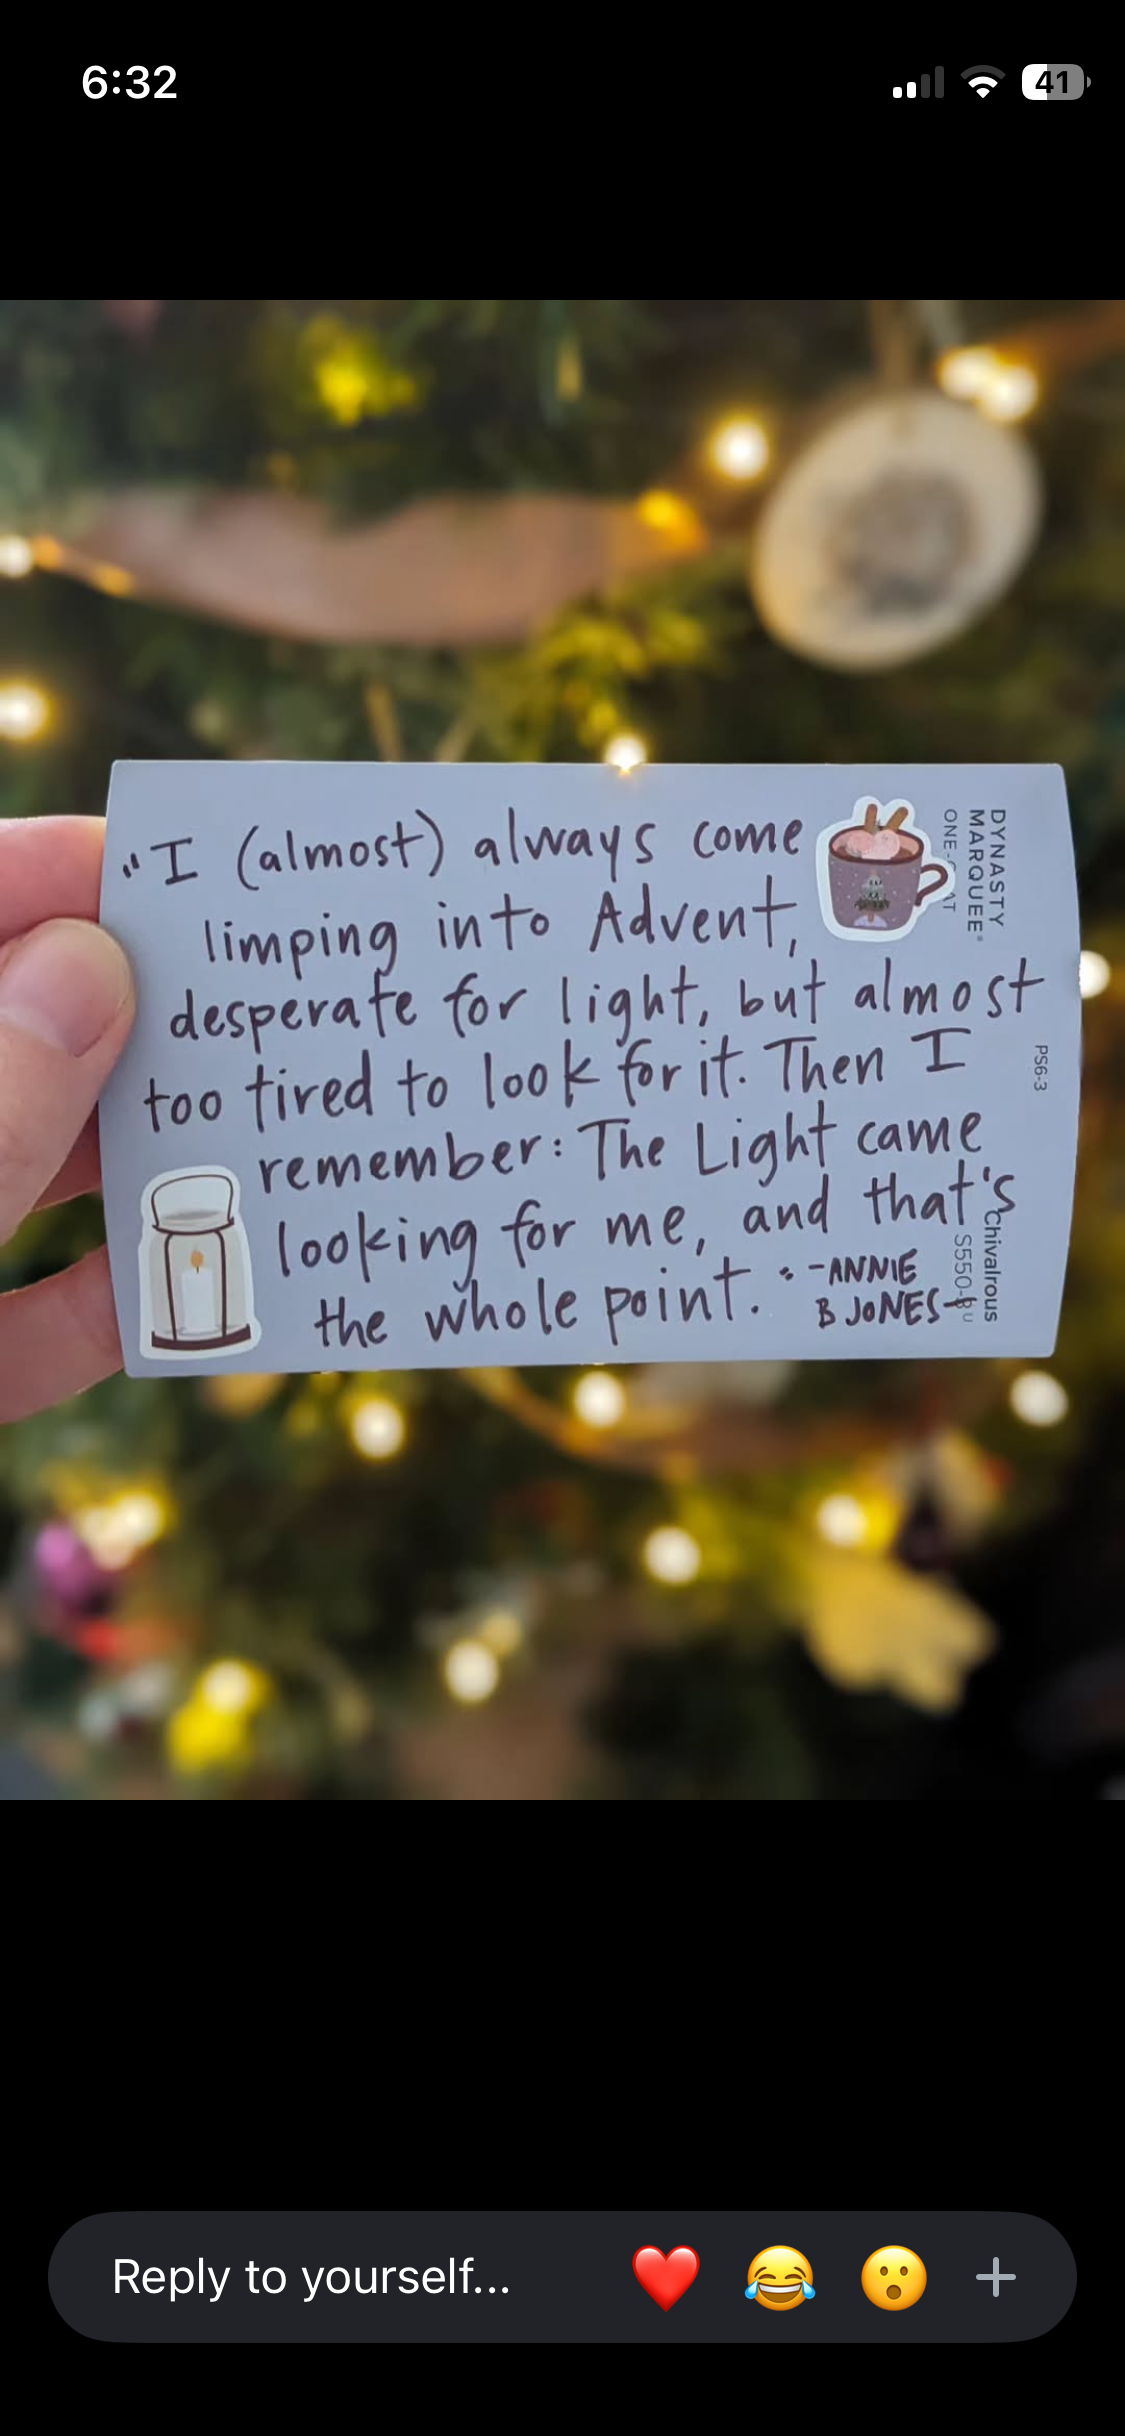 6:32
41
"I (almost) always come
limping into Advent,
desperate for light, but almost
too tired to look for it. Then I
remember: The Light came
looking for me, and that's
the whole point. -ANNIE
B JONES-
DYNASTY
MARQUEE®
PS6-3
Chivalrous
Reply to yourself...